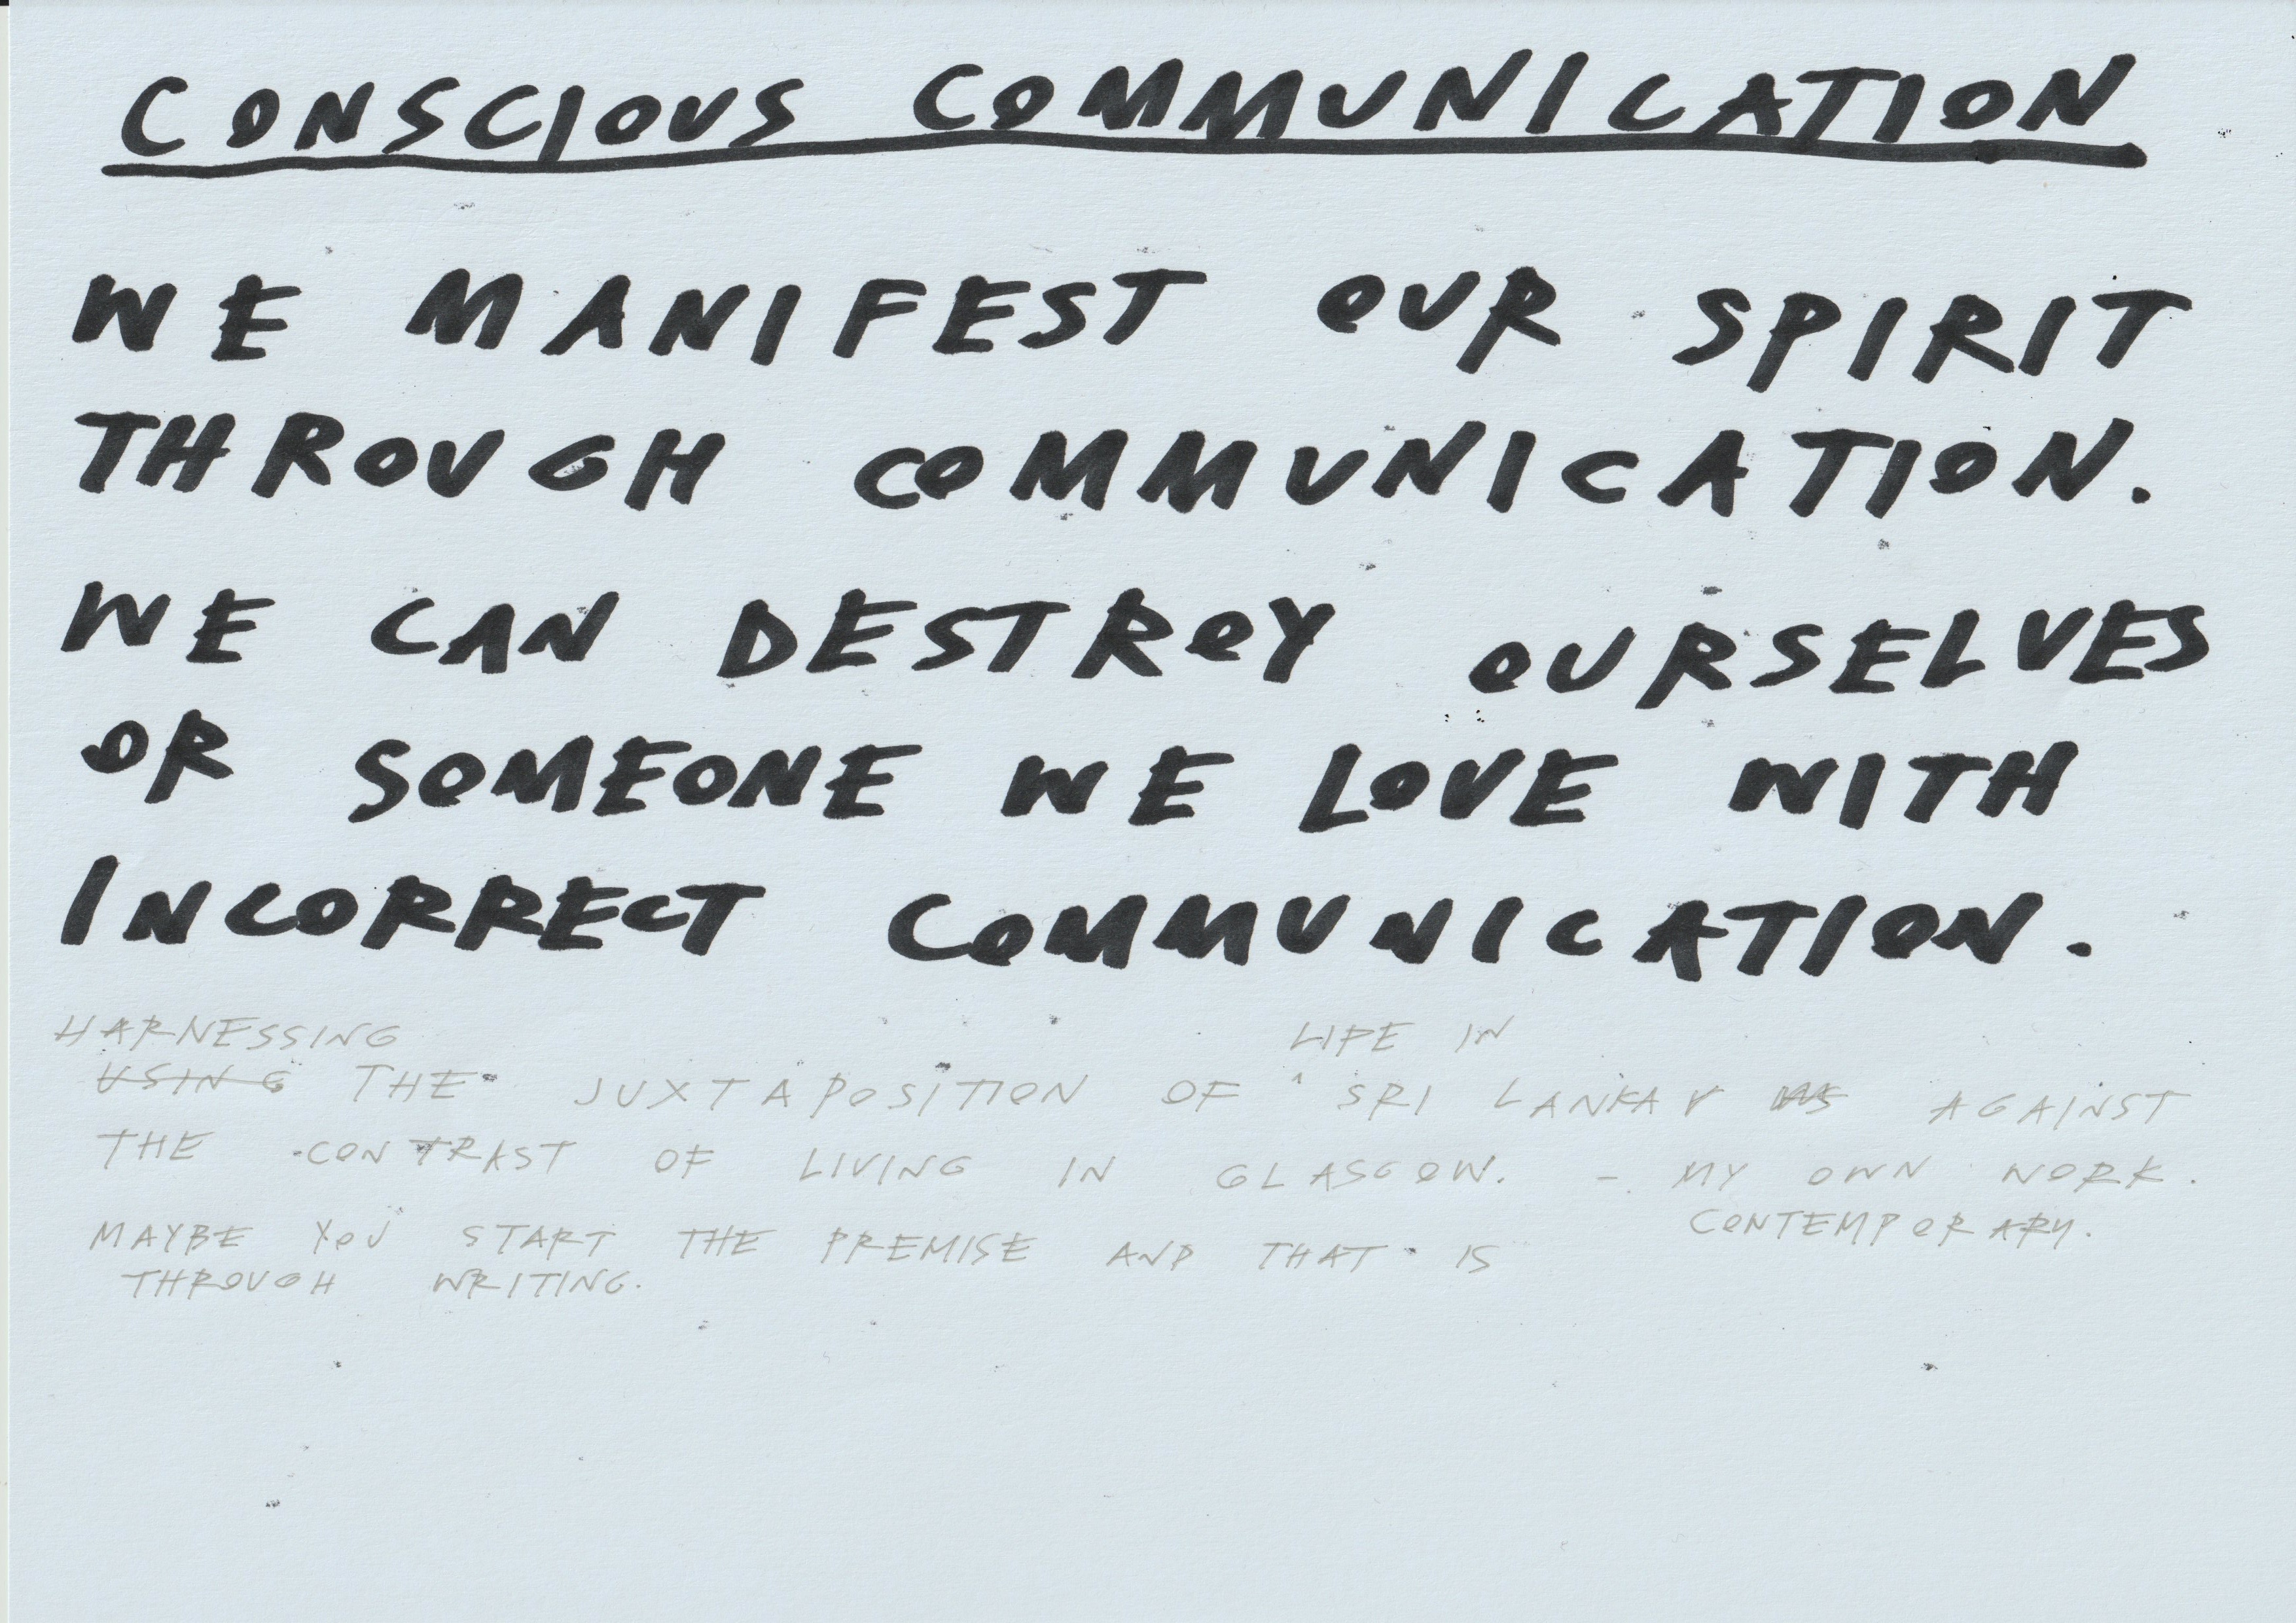 CONSCIOUS COMMUNICATION
WE MANIFEST OUR SPIRIT
THROUGH COMMUNICATION.
WE CAN DESTROY OURSELVES
OR SOMEONE WE LOVE WITH
INCORRECT COMMUNICATION.
HARNESSING LIFE IN
USING THE JUXTAPOSITION OF ^ SRI LANKA V AGAINST
THE CONTRAST OF LIVING IN GLASGOW. - MY OWN WORK.
CONTEMPORARY.
MAYBE YOU START THE PREMISE AND THAT IS
THROUGH WRITING.